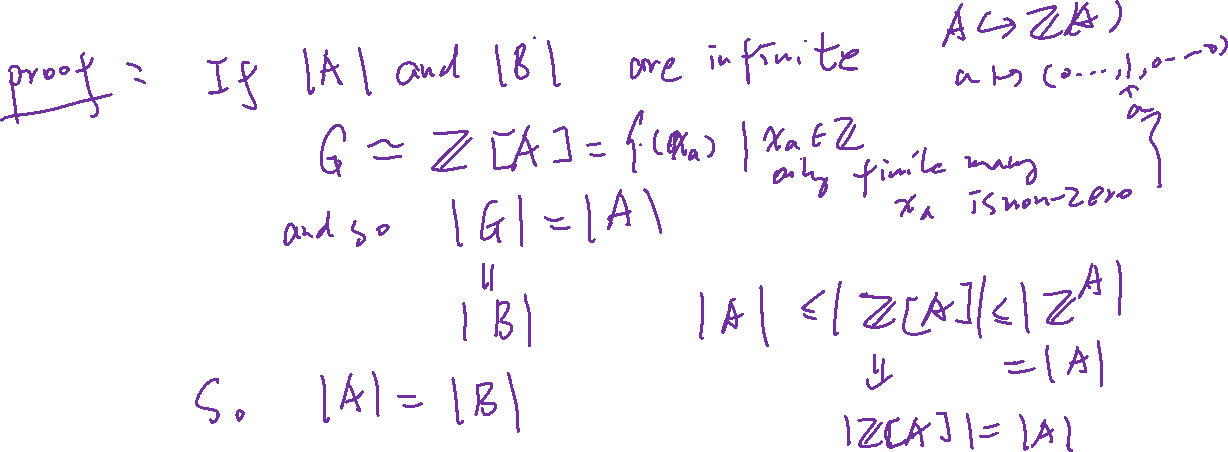 proof : If |A| and |B| are infinite
A ↪ Z[A]
a ↦ (0...,1,0...0)
↑
a
G ≃ Z[A] = {(x_a) | x_a ∈ Z
only finite many
x_a is non-zero }
and so |G| = |A|
||
|B|
|A| ≤ |Z[A]| ≤ |Z^A|
= |A|
⇓
|Z[A]| = |A|
So |A| = |B|